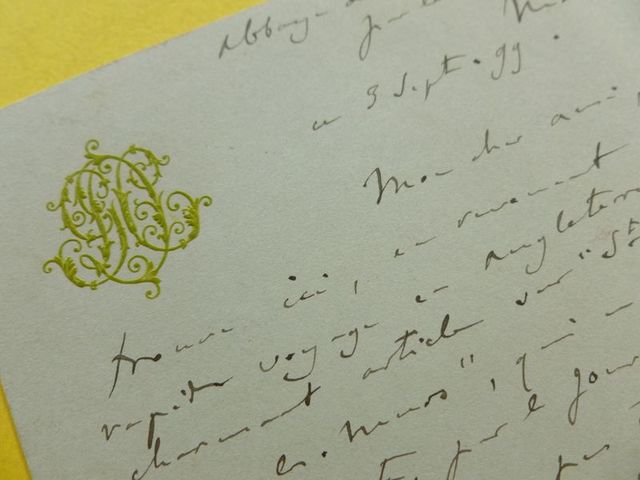 Abbaye
ce 3 Sept. 99.
Mon cher ami,
trouve ici, en revenant
rapide voyage en Angleterre
charmant article sur "St
en-Murs", qui
par le jour
par